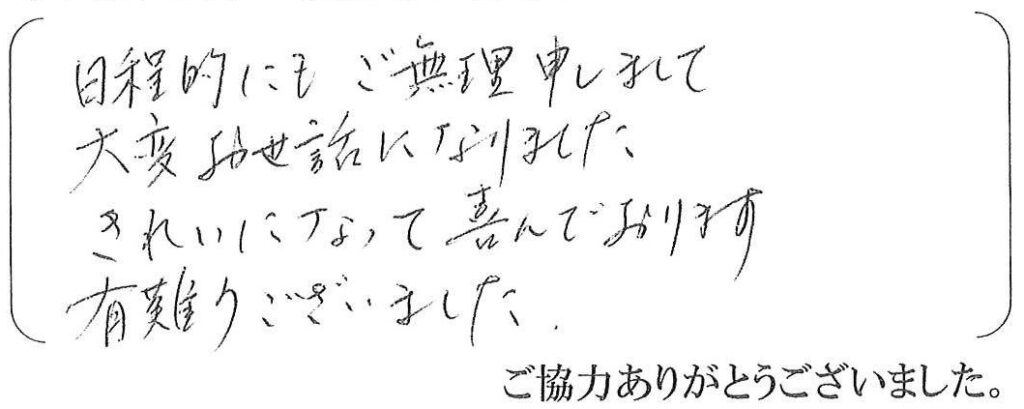 日程的にも ご無理申しまして
大変お世話になりました
きれいになって喜んでおります
有難うございました.
ご協力ありがとうございました。